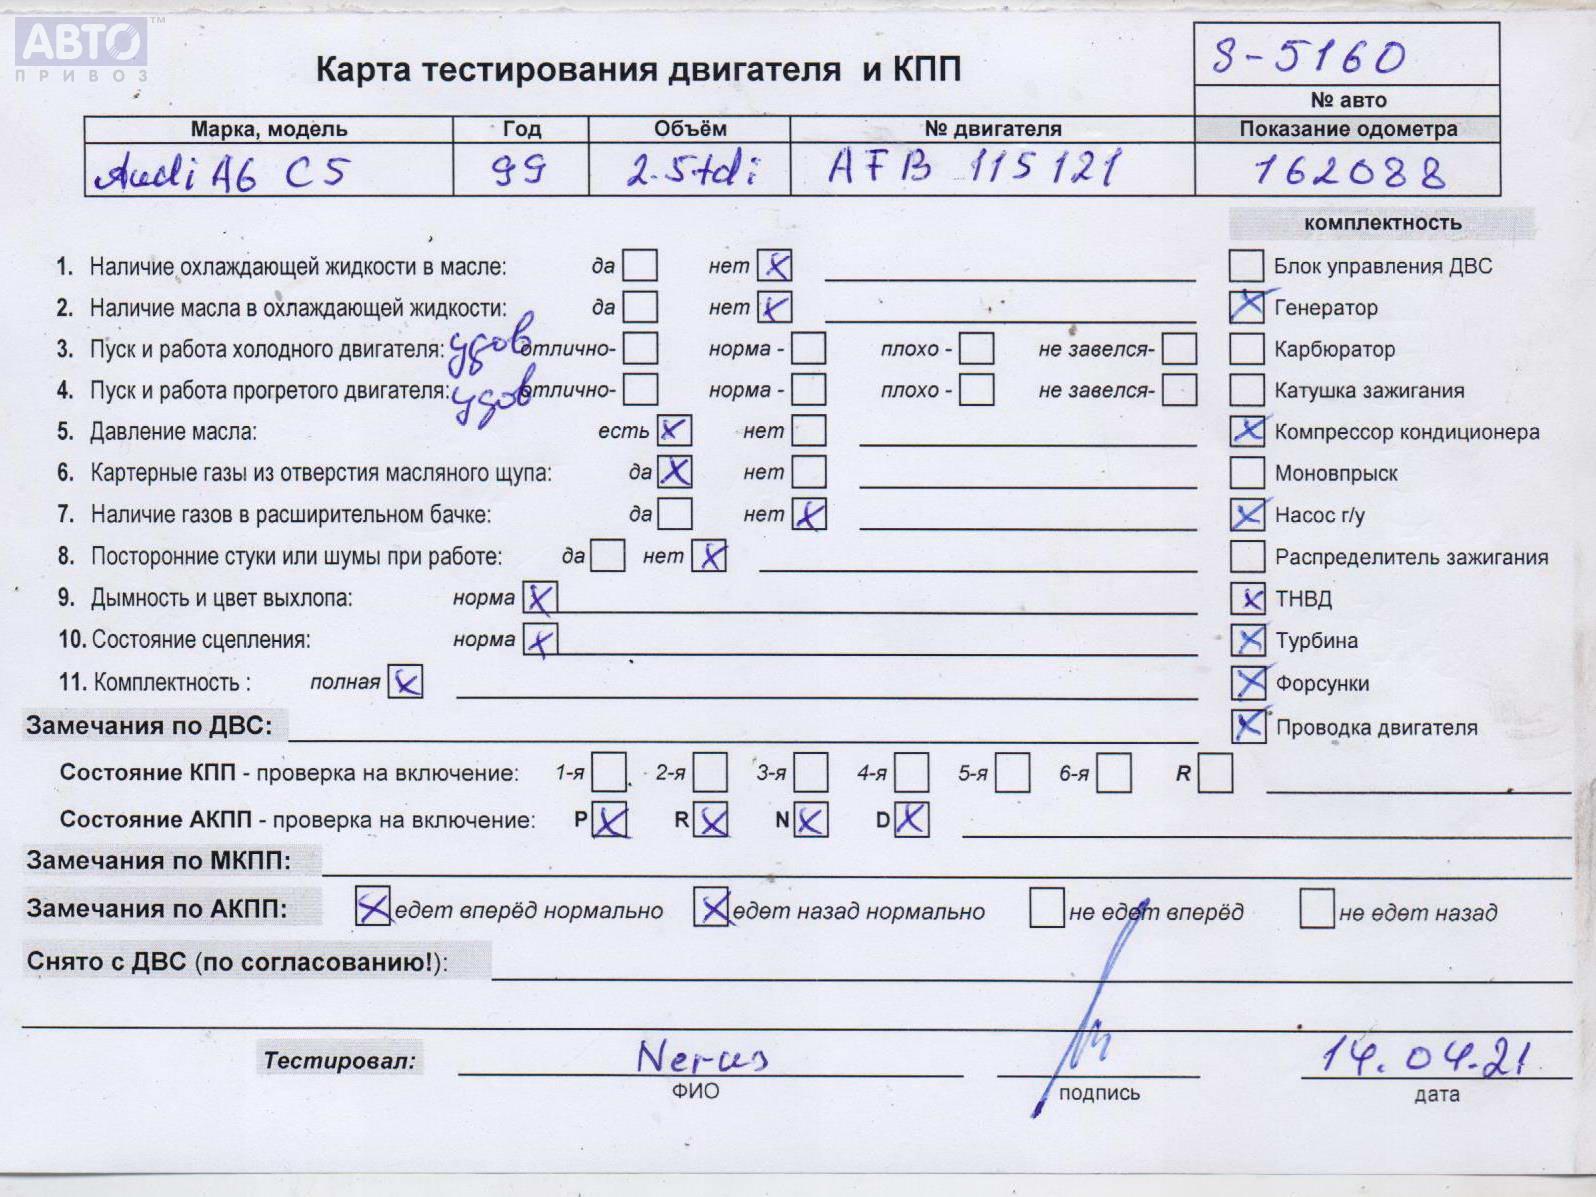 АВТО™
ПРИВОЗ
Карта тестирования двигателя и КПП
8-5160
№ авто
Марка, модель Год Объём № двигателя Показание одометра
Audi A6 C5 99 2.5tdi AFB 115121 162088
комплектность
1. Наличие охлаждающей жидкости в масле: да нет x Блок управления ДВС
2. Наличие масла в охлаждающей жидкости: да нет x x Генератор
3. Пуск и работа холодного двигателя: удов отлично- норма - плохо - не завелся- Карбюратор
4. Пуск и работа прогретого двигателя: удов отлично- норма - плохо - не завелся- Катушка зажигания
5. Давление масла: есть x нет x Компрессор кондиционера
6. Картерные газы из отверстия масляного щупа: да x нет Моновпрыск
7. Наличие газов в расширительном бачке: да нет x x Насос г/у
8. Посторонние стуки или шумы при работе: да нет x Распределитель зажигания
9. Дымность и цвет выхлопа: норма x x ТНВД
10. Состояние сцепления: норма x x Турбина
11. Комплектность : полная x x Форсунки
Замечания по ДВС: x Проводка двигателя
Состояние КПП - проверка на включение: 1-я 2-я 3-я 4-я 5-я 6-я R
Состояние АКПП - проверка на включение: P x R x N x D x
Замечания по МКПП:
Замечания по АКПП: x едет вперёд нормально x едет назад нормально не едет вперёд не едет назад
Снято с ДВС (по согласованию!):
Тестировал: 14.04.21
ФИО подпись дата